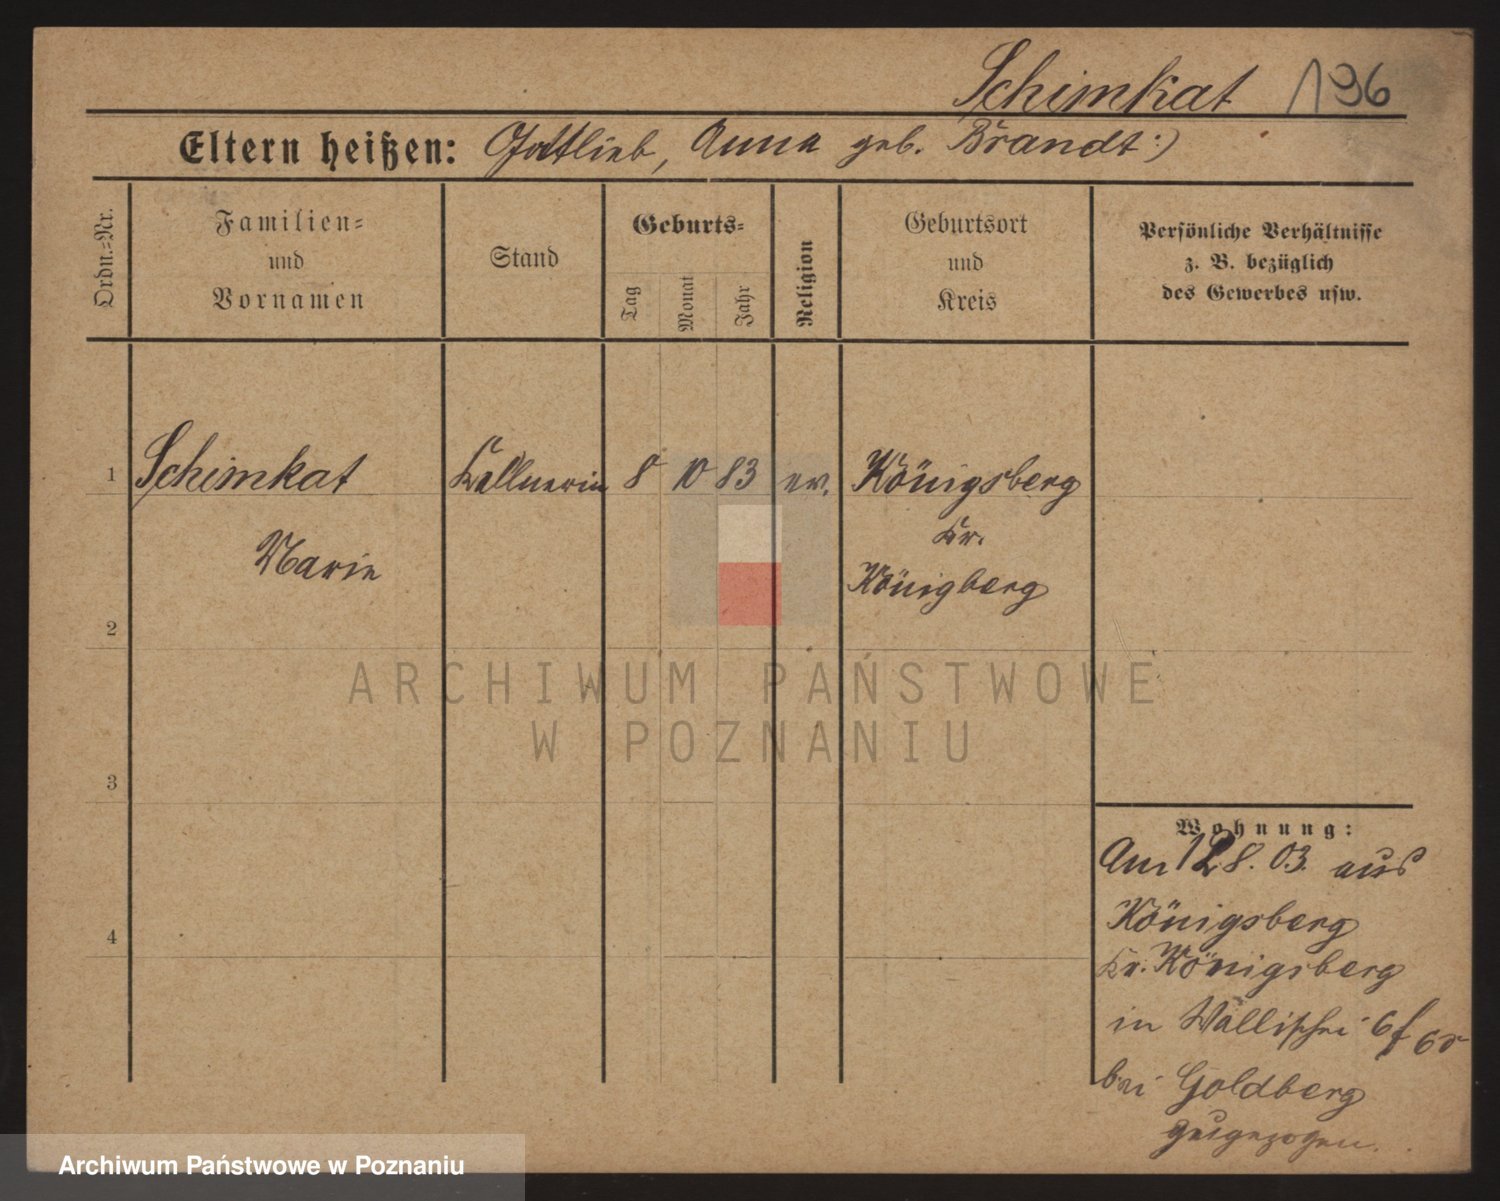 Schimkat 196
Eltern heißen: Gottlieb, Anna geb. Brandt :)
Ordn.=Nr.
Familien=
und
Vornamen
Stand
Geburts=
Tag
Monat
Jahr
Religion
Geburtsort
und
Kreis
Persönliche Verhältnisse
z. B. bezüglich
des Gewerbes usw.
1 Schimkat Kellnerin 8 10 83 ev. Königsberg
Kr.
Marie Königberg
2
ARCHIWUM PAŃSTWOWE
W POZNANIU
3
Wohnung:
Am 12 8. 03. aus
Königsberg
4
Kr. Königsberg
in Wallischei
bei Goldberg
zugezogen.
Archiwum Państwowe w Poznaniu